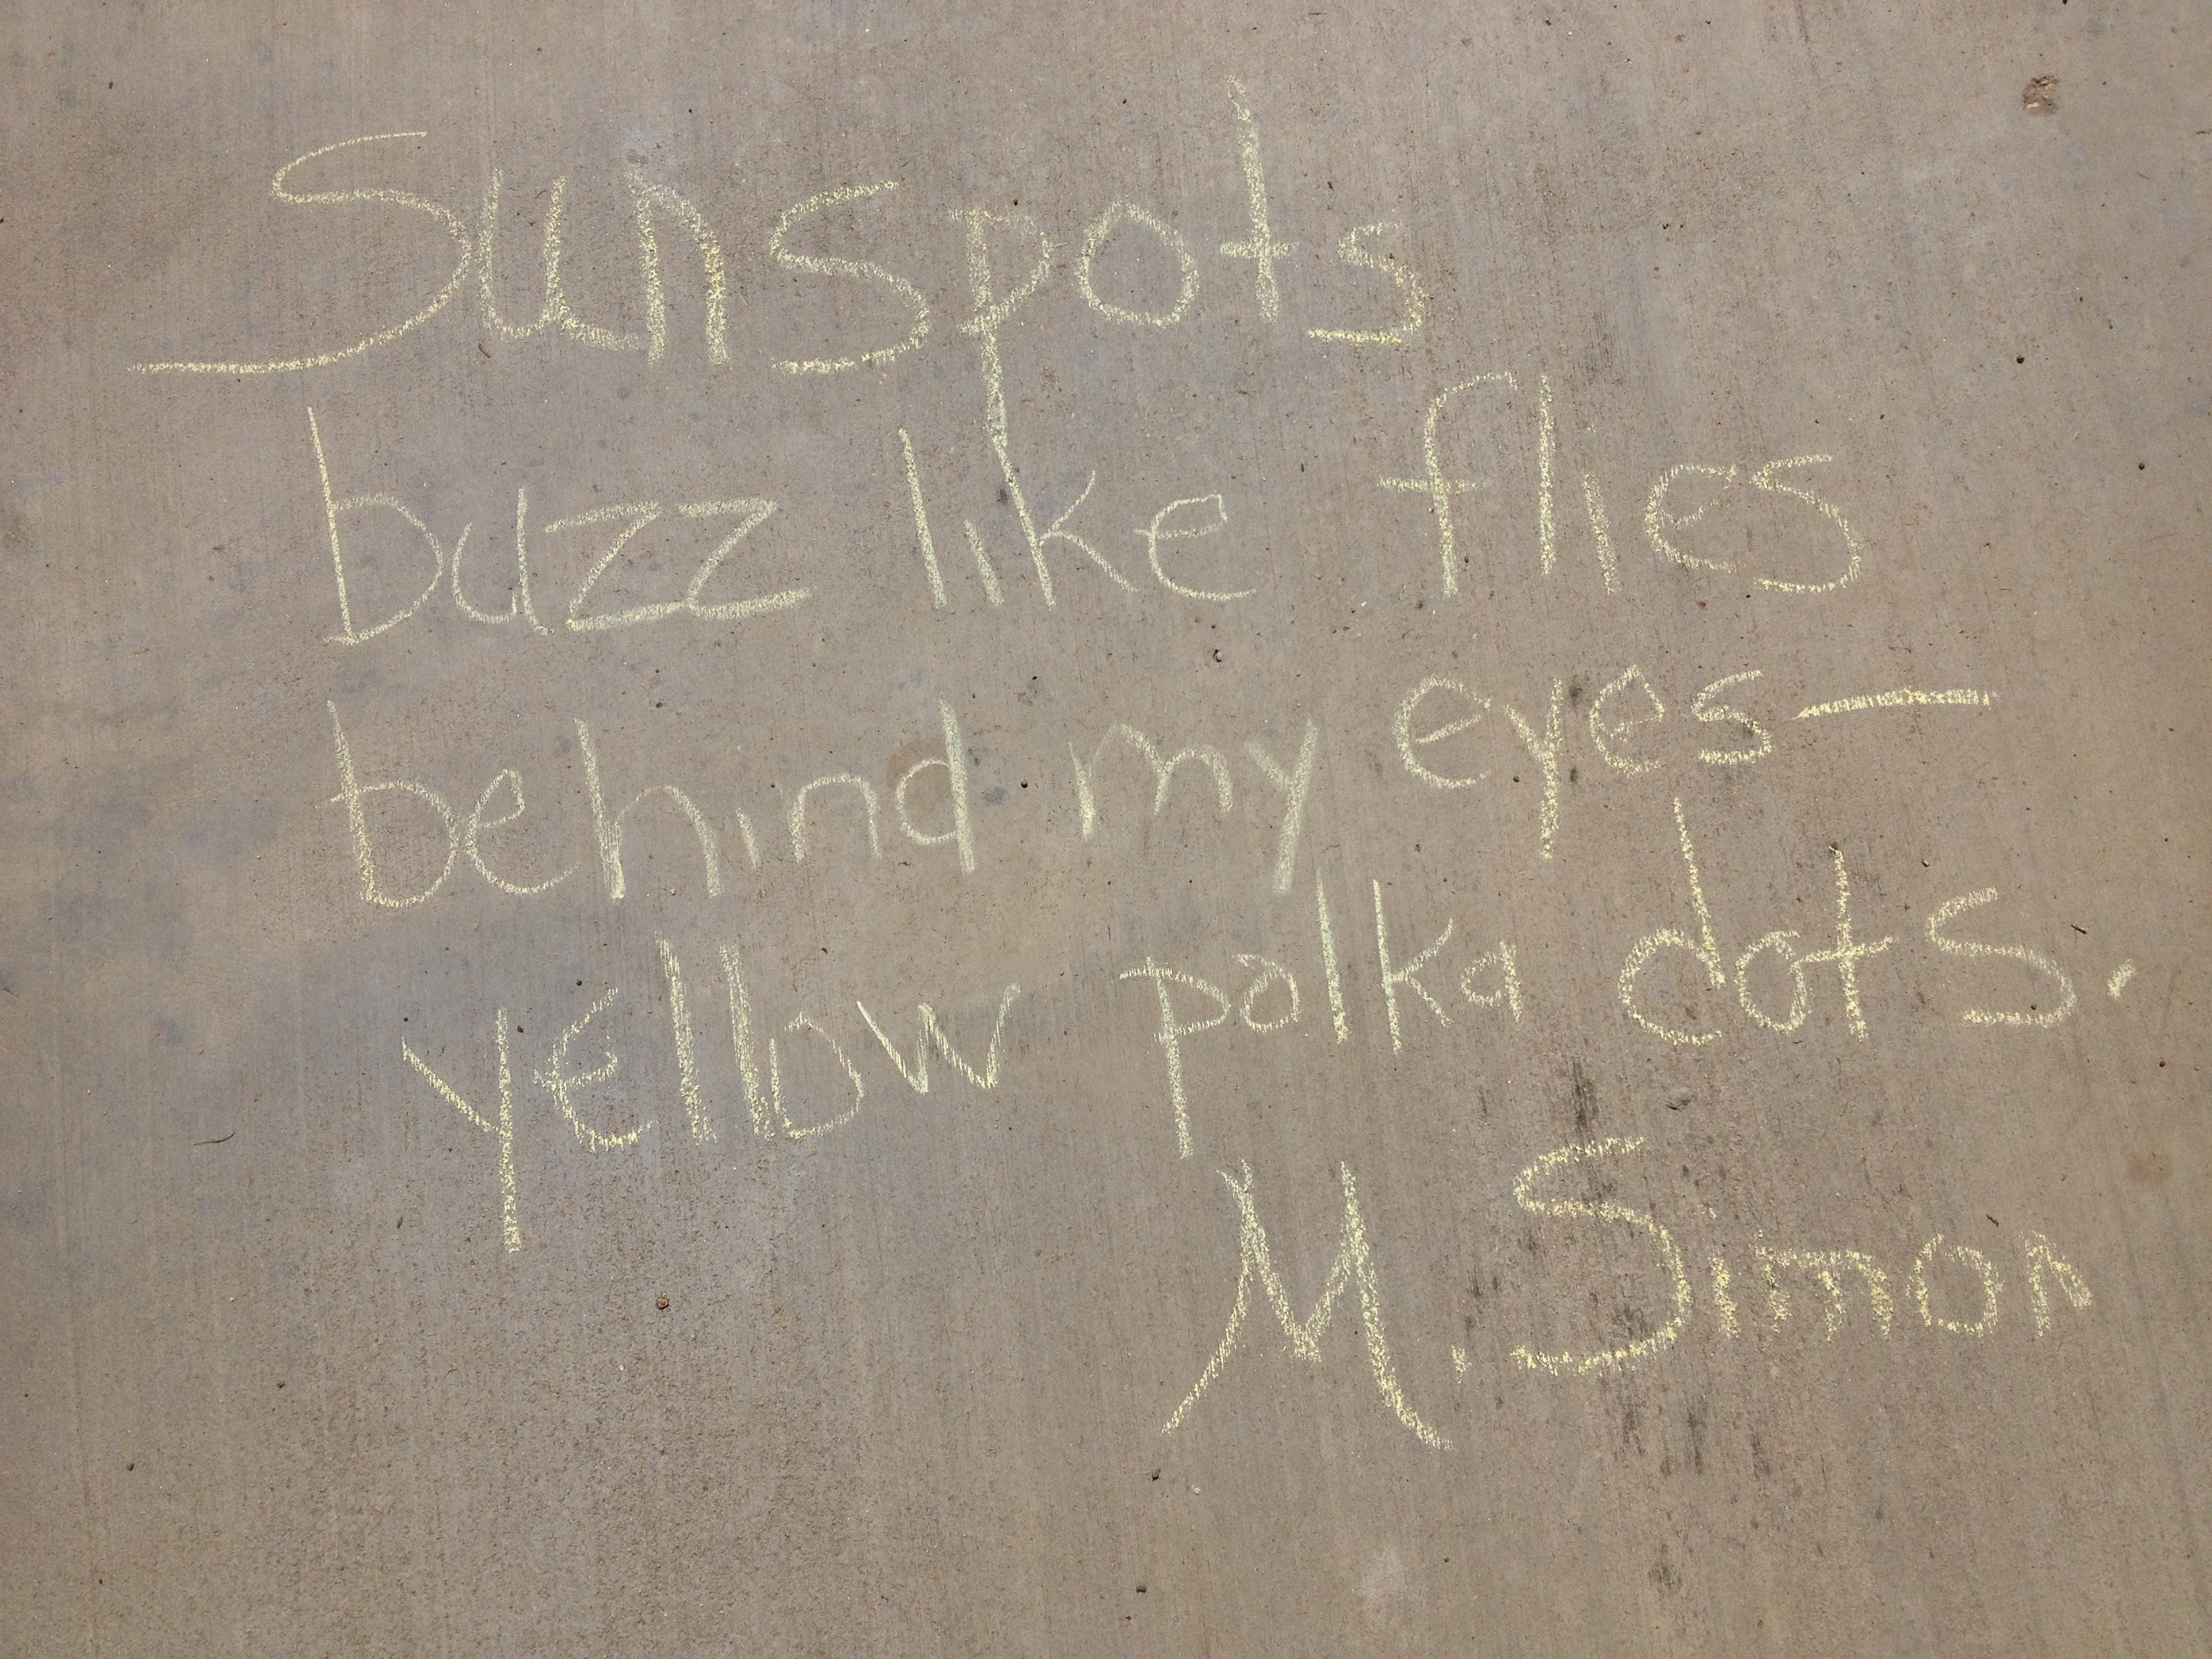 Sunspots
buzz like flies
behind my eyes—
yellow polka dots.
M. Simon